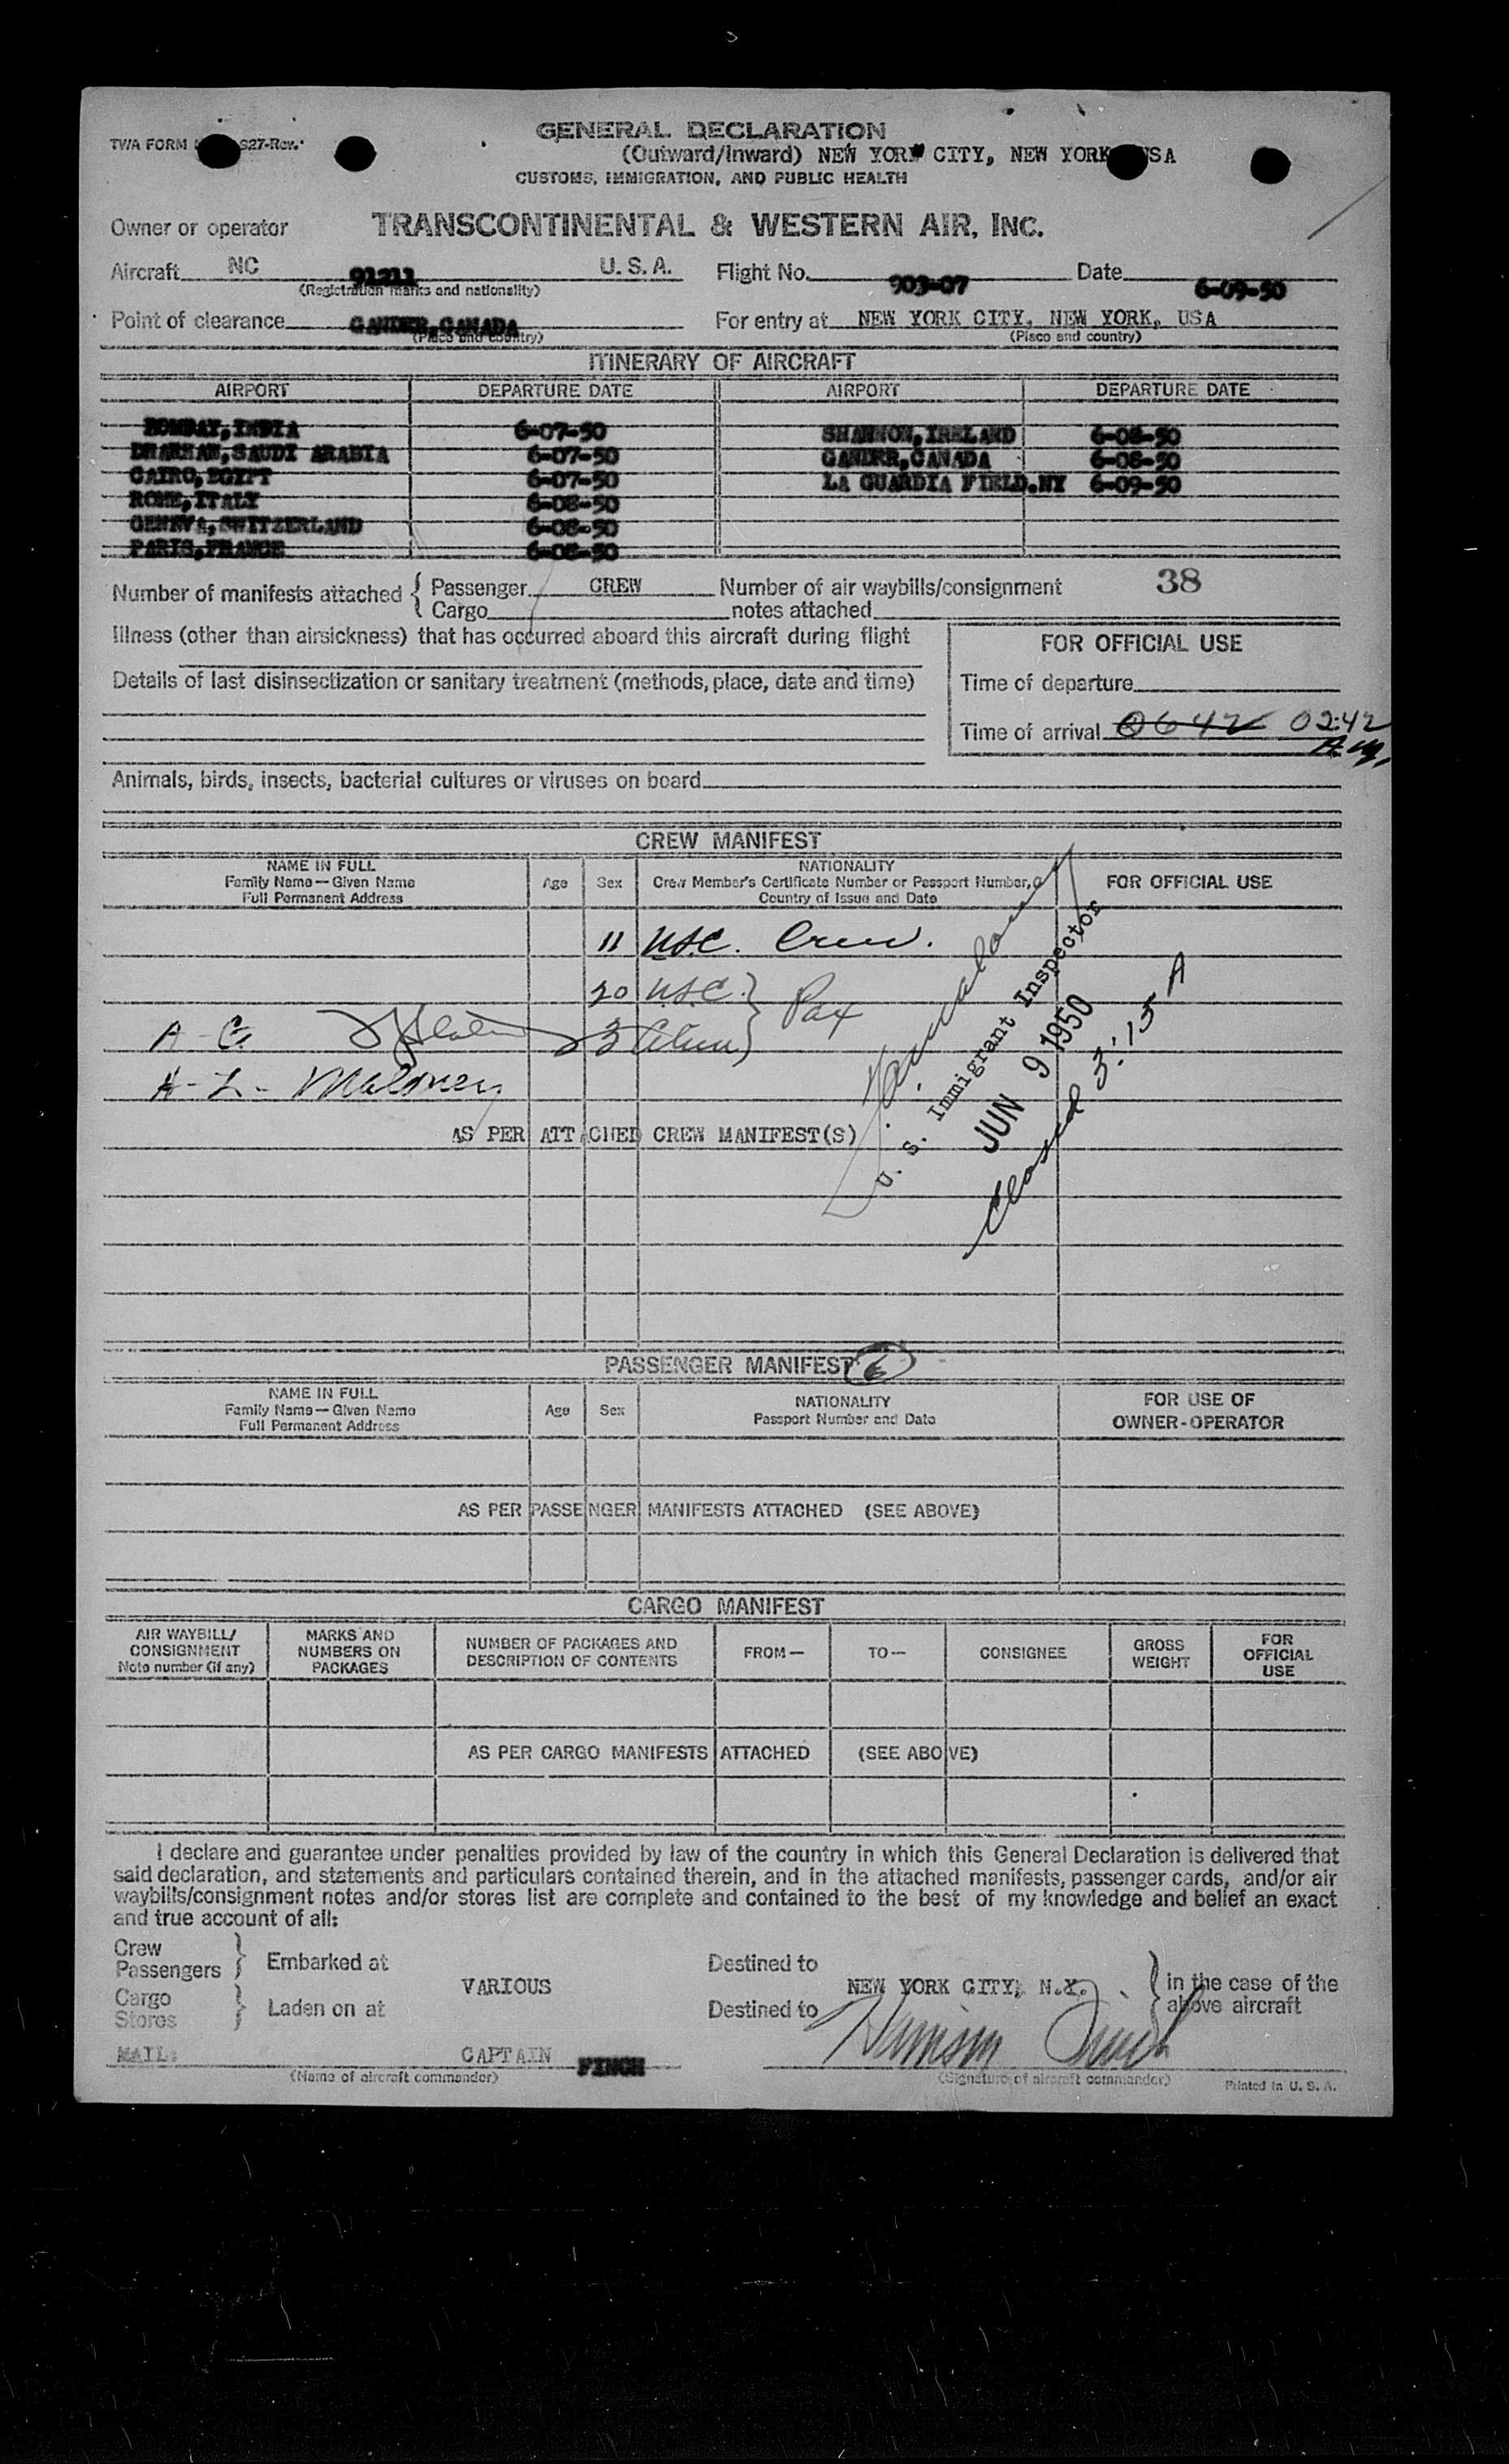 GENERAL DECLARATION
TWA FORM 927-Rev.
(Outward/Inward) NEW YORK CITY, NEW YORK, USA
CUSTOMS, IMMIGRATION, AND PUBLIC HEALTH
Owner or operator TRANSCONTINENTAL & WESTERN AIR, INC.
Aircraft NC 91211 U. S. A. Flight No. 903-07 Date 6-09-50
(Registration marks and nationality)
Point of clearance GANDER, CANADA For entry at NEW YORK CITY, NEW YORK, USA
(Place and country) (Place and country)
ITINERARY OF AIRCRAFT
AIRPORT DEPARTURE DATE AIRPORT DEPARTURE DATE
BOMBAY, INDIA 6-07-50 SHANNON, IRELAND 6-08-50
DHAHRAN, SAUDI ARABIA 6-07-50 GANDER, CANADA 6-08-50
CAIRO, EGYPT 6-07-50 LA GUARDIA FIELD.NY 6-09-50
ROME, ITALY 6-08-50
GENEVA, SWITZERLAND 6-08-50
PARIS, FRANCE 6-08-50
Number of manifests attached { Passenger CREW Number of air waybills/consignment 38
Cargo notes attached
Illness (other than airsickness) that has occurred aboard this aircraft during flight
FOR OFFICIAL USE
Details of last disinsectization or sanitary treatment (methods, place, date and time)
Time of departure
Time of arrival 0642 02:42
A.M.
Animals, birds, insects, bacterial cultures or viruses on board
CREW MANIFEST
NAME IN FULL
Family Name — Given Name
Full Permanent Address
Age Sex
NATIONALITY
Crew Member's Certificate Number or Passport Number,
Country of Issue and Date
FOR OFFICIAL USE
11 USC. Crew.
20 USC. } Pax
A - G. 23 Alien
A - L - Maloney
AS PER ATTACHED CREW MANIFEST(S)
U. S. Immigrant Inspector
JUN 9 1950
Closed 3:15 A
PASSENGER MANIFEST 6
NAME IN FULL
Family Name — Given Name
Full Permanent Address
Age Sex
NATIONALITY
Passport Number and Date
FOR USE OF
OWNER-OPERATOR
AS PER PASSENGER MANIFESTS ATTACHED (SEE ABOVE)
CARGO MANIFEST
AIR WAYBILL/
CONSIGNMENT
Note number (if any)
MARKS AND
NUMBERS ON
PACKAGES
NUMBER OF PACKAGES AND
DESCRIPTION OF CONTENTS
FROM— TO— CONSIGNEE
GROSS
WEIGHT
FOR
OFFICIAL
USE
AS PER CARGO MANIFESTS ATTACHED (SEE ABOVE)
I declare and guarantee under penalties provided by law of the country in which this General Declaration is delivered that
said declaration, and statements and particulars contained therein, and in the attached manifests, passenger cards, and/or air
waybills/consignment notes and/or stores list are complete and contained to the best of my knowledge and belief an exact
and true account of all:
Crew
Passengers } Embarked at Destined to
VARIOUS NEW YORK CITY, N.Y. } in the case of the
above aircraft
Cargo
Stores } Laden on at Destined to
MAIL: CAPTAIN FINCH Harrison Finch
(Name of aircraft commander) (Signature of aircraft commander) Printed in U. S. A.